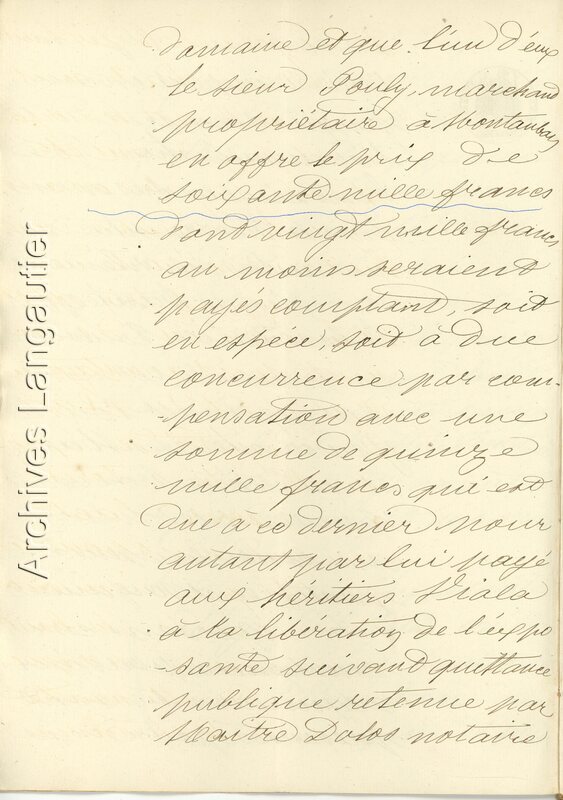 domaine et que l'un d'eux
le sieur Pouly, marchand
propriétaire à Montauban
en offre le prix de
soixante mille francs
dont vingt mille francs
au moins seraient
payés comptant, soit
en espéce, soit à due
concurrence par com-
-pensation avec une
somme de quinze
mille francs qui est
due à ce dernier pour
autant par lui payé
aux héritiers Viala
à la libération de l'expo
-sante suivant quittance
publique retenue par
Maitre Dolos notaire
Archives Langautier